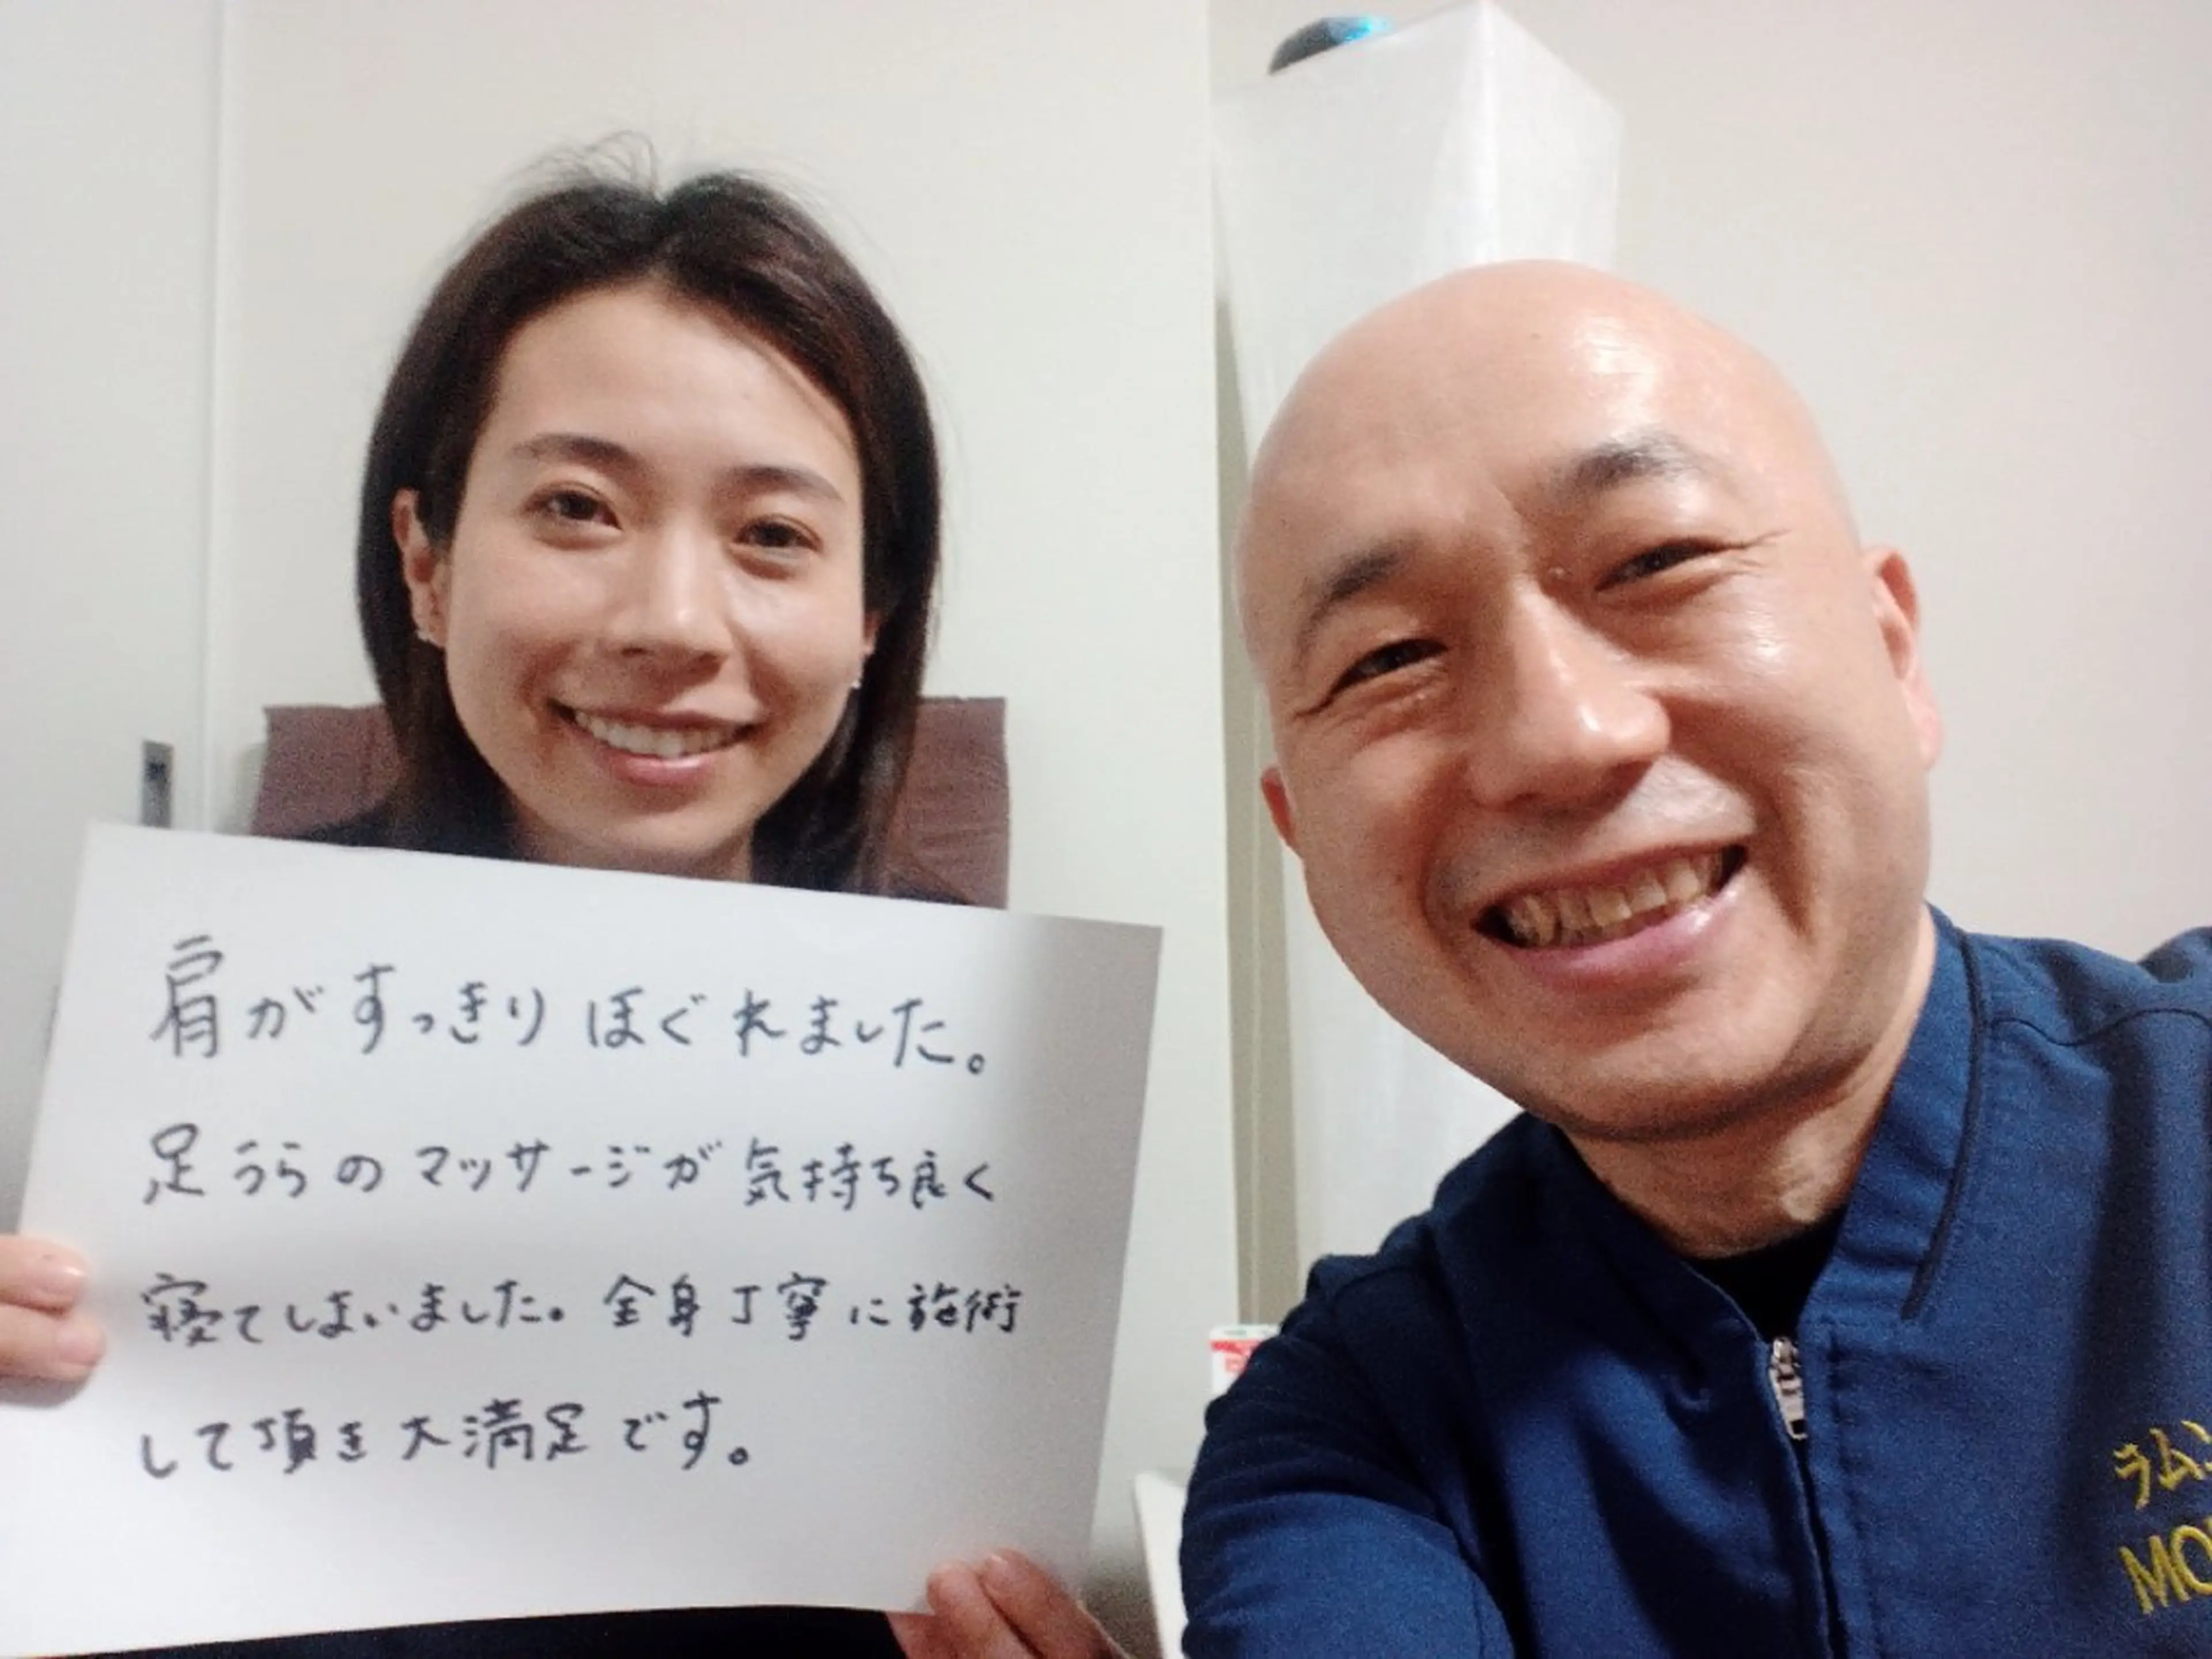 肩がすっきりほぐれました。
足うらのマッサージが気持ち良く
寝てしまいました。全身丁寧に施術
して頂き大満足です。
ラム
MO